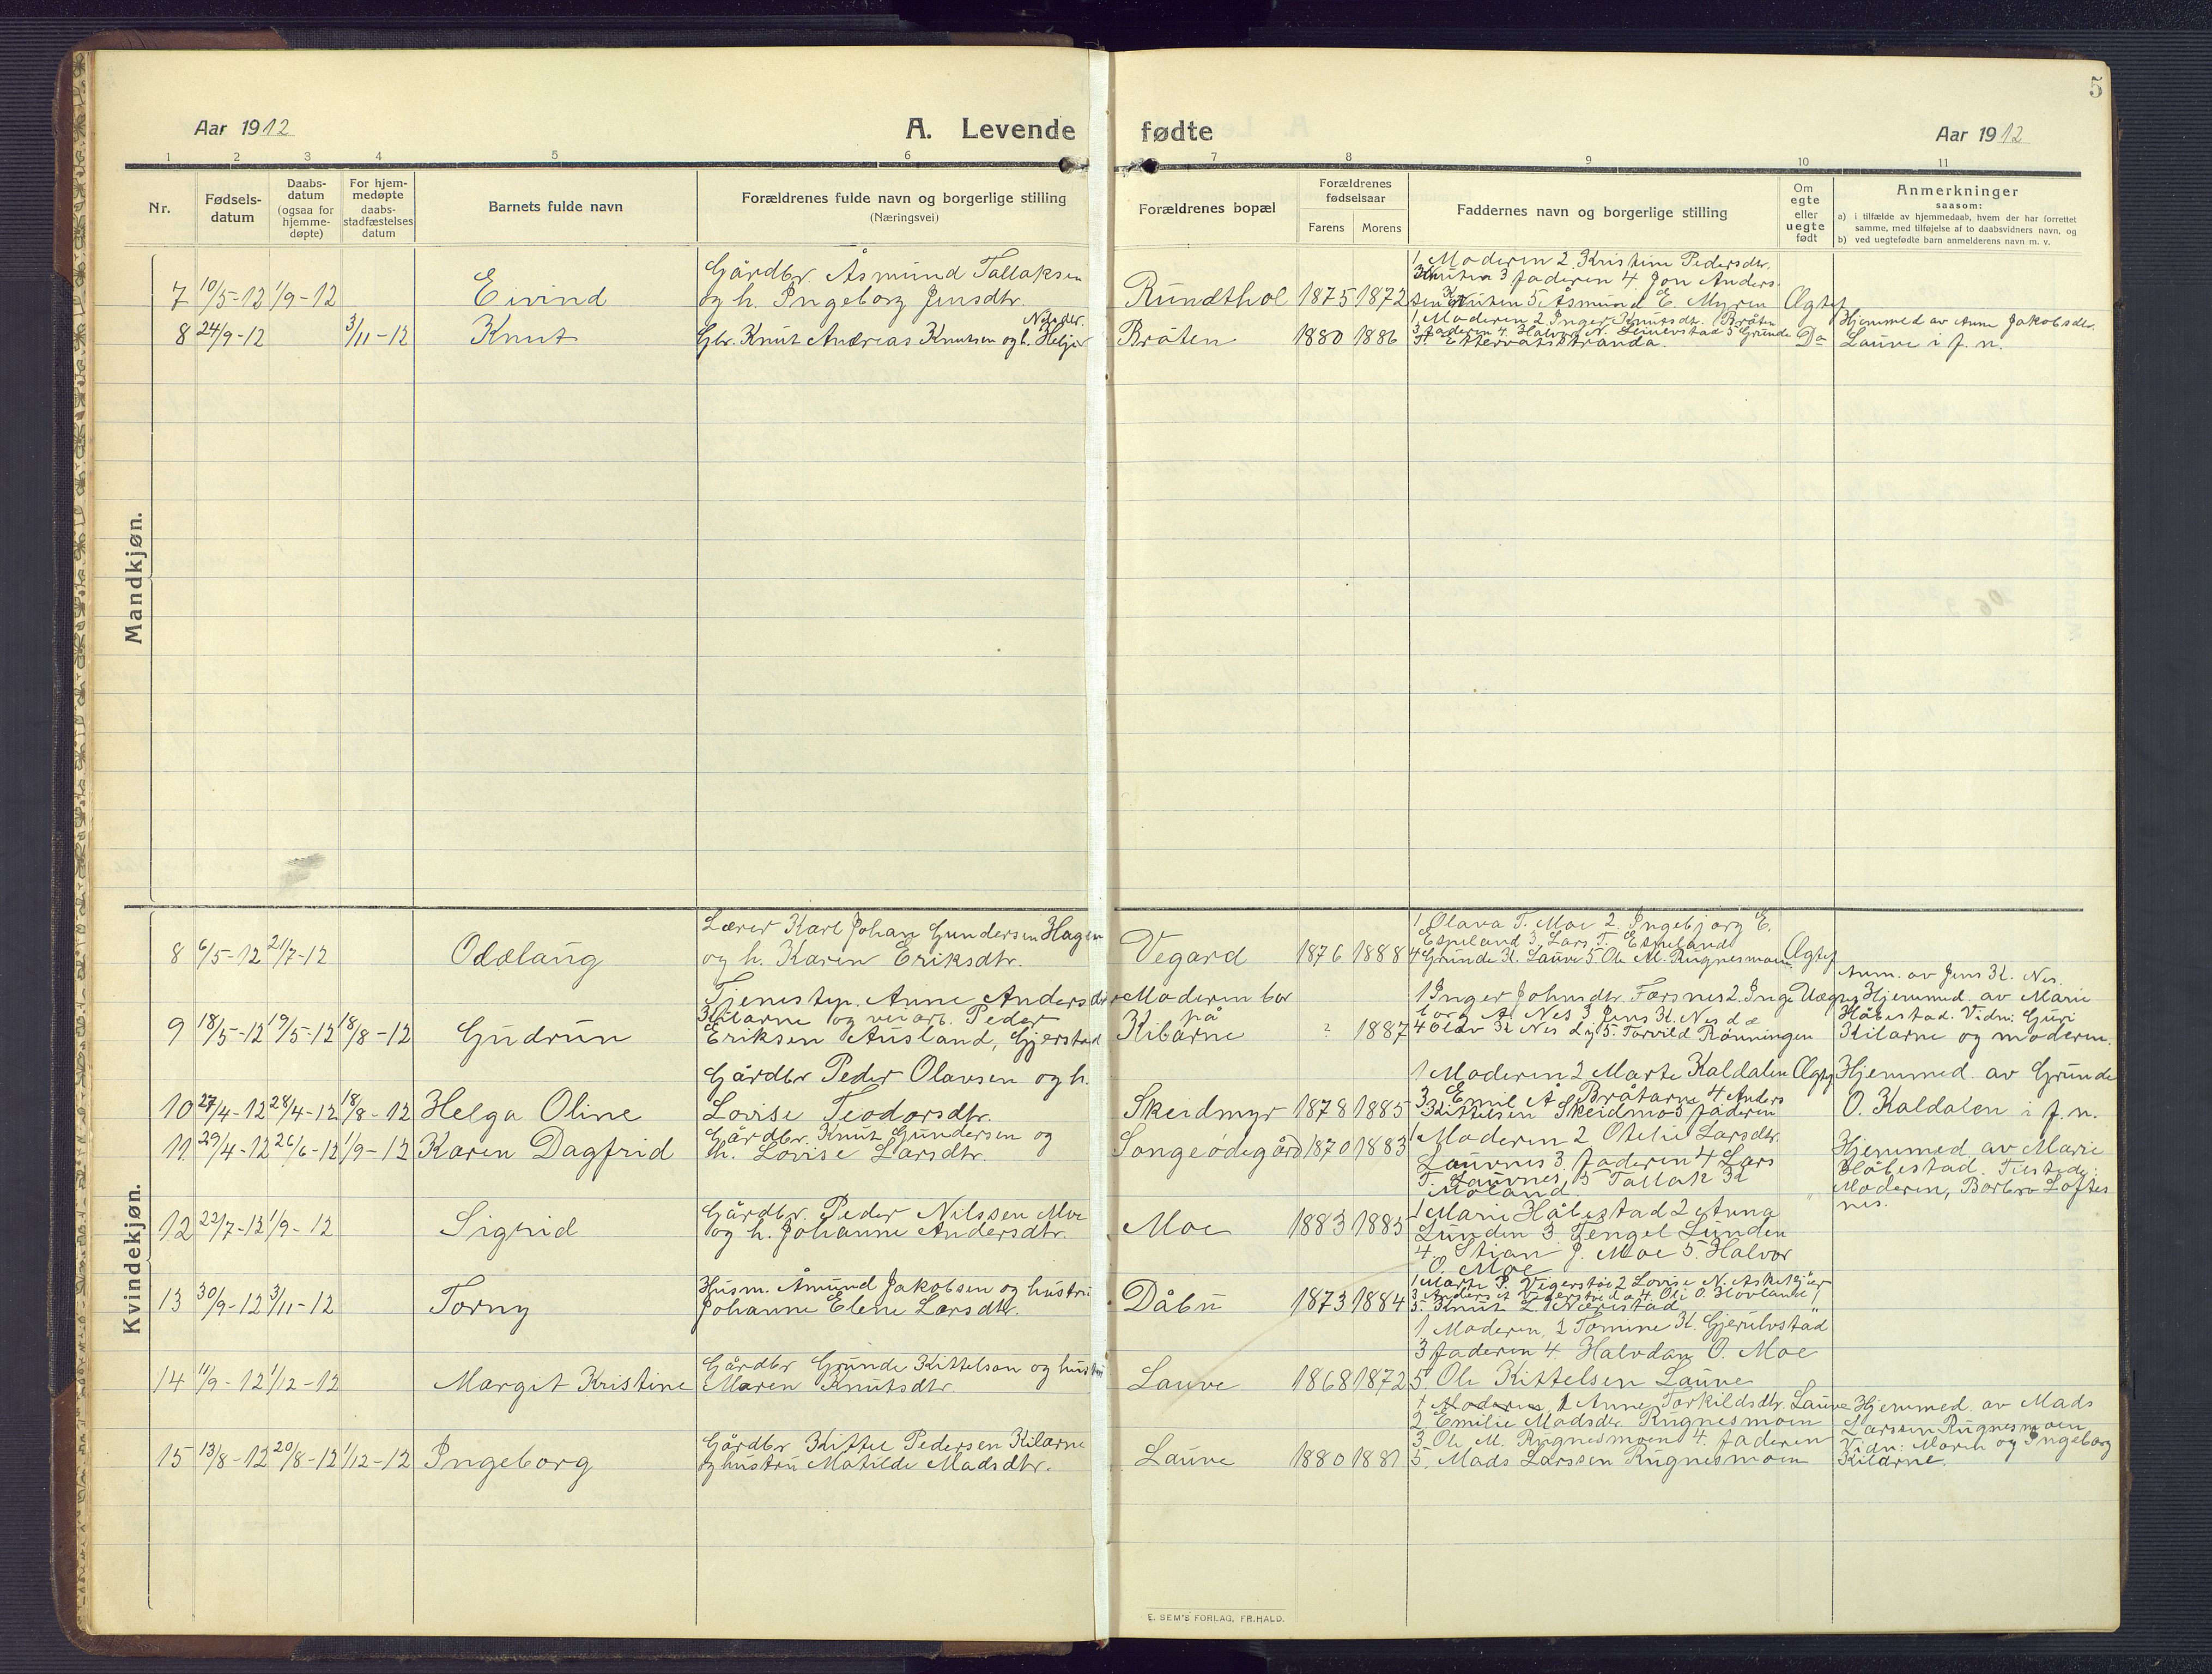 5
Aar 1912
A. Levende
fødte
Aar 1912
1 2 3 4 5 6
7 8 9 10 11
Nr.
Fødsels-
datum
Daabs-
datum
(ogsaa for
hjemme-
døpte)
For hjem-
medøpte
daabs-
stadfæstelses
datum
Barnets fulde navn
Forældrenes fulde navn og borgerlige stilling
(Næringsvei)
Forældrenes bopæl
Forældrenes
fødselsaar
Farens Morens
Faddernes navn og borgerlige stilling
Om
egte
eller
uegte
født
Anmerkninger
saasom:
a) i tilfælde av hjemmedaab, hvem der har forrettet
samme, med tilføielse af to daabsvidners navn, og
b) ved uegtefødte barn anmelderens navn m. v.
Mandkjøn.
7 10/5-12 1/9-12 Eivind
Gårdbr. Åsmund Tallaksen
og h. Ingeborg Jensdtr.
Rundthol 1875 1872
1 Moderen 2 Kristine Pedersdtr.
3 faderen 4 Jon Anders
sen 5 Åsmund E. Myren
Ægte
8 24/9-12 3/11-12 Knut
Gbr. Knut Andreas Knutsen og h.
Bråten 1880 1886
1 Moderen 2 Inger Knutsdtr. Bråten
3 faderen 4 Halvor N. 5 Grunde
Do
Hjemmed av Anne Jakobsdtr.
Lauve i f. n.
Kvindekjøn.
8 6/5-12 21/7-12 Oddlaug
Lærer Karl Johan Gundersen Hagen
og h. Karen Eriksdtr.
Vegard 1876 1888
1 Olava T. Moe 2 Ingebjorg E.
Espeland 3 Lars T. Espeland
4 Grunde K. Lauve 5 Ole M. Rugnesmoen
Ægte
9 18/5-12 19/5-12 18/8-12 Gudrun
Tjenestep. Anne Andersdtr
Kilarne og veiarb. Peder
Eriksen Ausland, Gjerstad
Moderen bor
på
Kilarne ? 1887
1 Inger Johnsdtr. Førsnes 2 Inge
borg A. Nes 3 Jens K. Nes
4 Olav K Nes 5. Torvild Rønningen
Uægte
Anm. av Jens K. Nes.
Hjemmed. av Marie
Håbestad. Vidn: Guri
Kilarne og moderen.
10 27/4-12 28/4-12 18/8-12 Helga Oline
Gårdbr Peder Olavsen og h.
Lovise Teodorsdtr.
Skeidmyr 1878 1885
1 Moderen 2 Marte Kaldalen
3 Emil A Bråtarne 4 Anders
Kittelsen Skeidmo 5 faderen
Ægte
Hjemmed. av Grunde
O. Kaldalen i f. n.
11. 29/4-12 26/6-12 1/9-12 Karen Dagfrid
Gårdbr. Knut Gundersen og
h. Lovise Larsdtr.
Songeødegård 1870 1883
1 Moderen 2 Otelie Larsdtr.
Lauvnes 3. faderen 4 Lars
T. Lauvnes, 5 Tallak K
Moland.
Hjemmed av Marie
Håbestad. Tilstede:
Moderen, Barbro Løftes
nes.
12 22/7-12 1/9-12 Sigrid
Gårdbr. Peder Nilssen Moe
og h. Johanne Andersdtr.
Moe 1883 1885
1 Marie Håbestad 2 Anna
Lunden 3 Tengel Lunden
4. Stian J. Moe 5. Halvor
O. Moe
13 30/9-12 3/11-12 Torny
Husm. Åmund Jakobsen og hustru
Johanne Elene Larsdtr.
Dåbu 1873 1884
1 Marte P. Vegerstøl 2 Lovise N.
3 Anders 4. Ole O. Hovland
5 Knut L.
14 11/9-12 1/12-12 Margit Kristine
Gårdbr Grunde Kittelsen og hustru
Maren Knutsdtr.
Lauve 1868 1872
1 Moderen, 2 Tomine K. Gjerulvstad
3 faderen 4 Halvdan O. Moe
5 Ole Kittelsen Lauve
15 13/8-12 20/8-12 1/12-12 Ingeborg
Gårdbr Kittel Pedersen Kilarne
og hustru Matilde Madsdtr.
Lauve 1880 1881
1 Moderen, 1 Anne Torkildsdtr. Lauve
2. Emilie Madsdtr. Rugnesmoen
3 Ole M. Rugnesmoen 4. faderen
5. Mads Larssen Rugnesmoen
Hjemmed. av Mads
Larssen Rugnesmoen
Vidn: Maren og Ingeborg
Kilarne.
E. SEM'S FORLAG, FR.HALD.